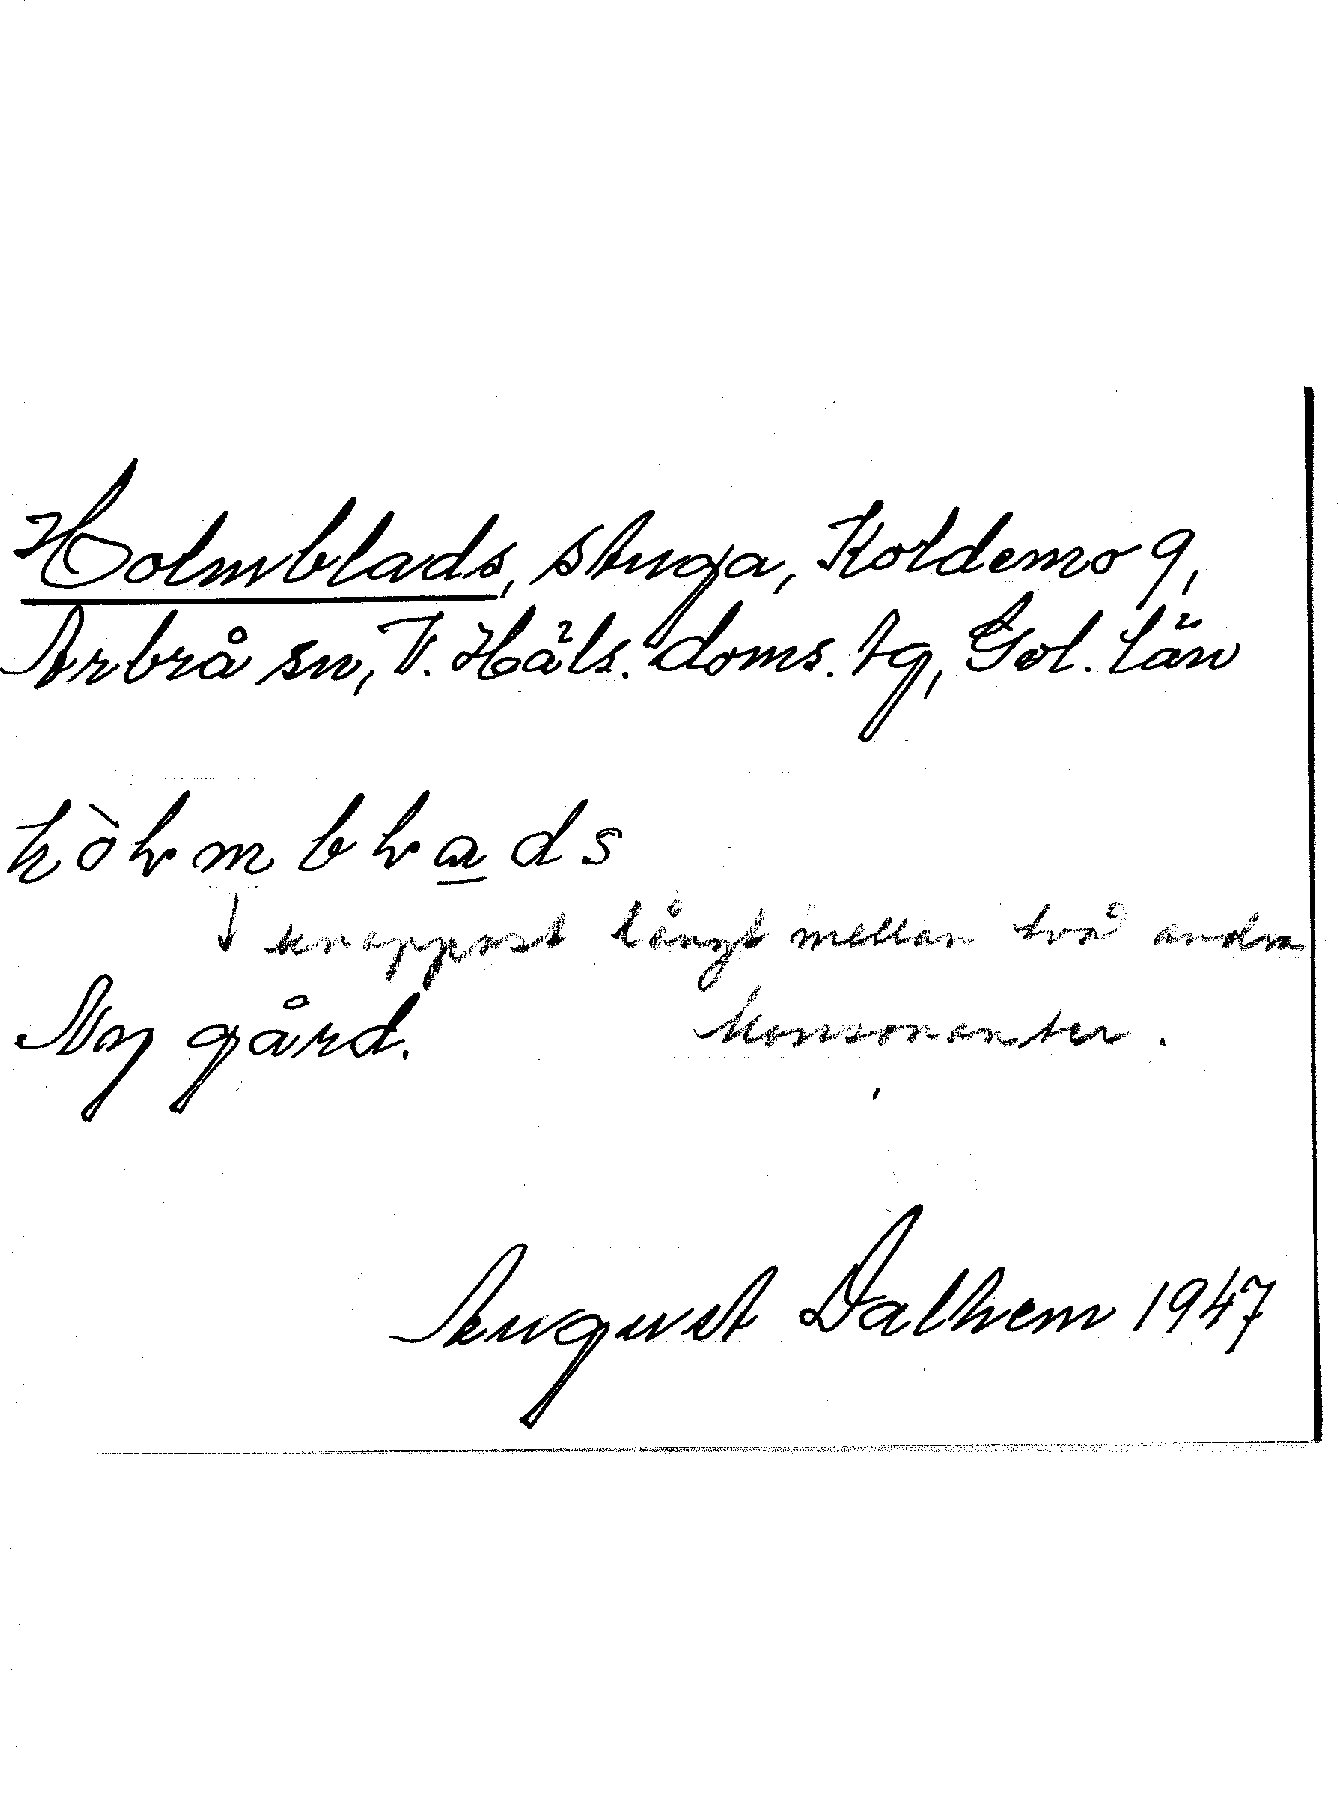 Holmblads, stuga, Koldemo 9,
Arbrå sn, V. Häls. doms. tg, Gvl. län
hòlmblads
knappast långt mellan två andra
konsonanter.
Ny gård.
August Dalhem 1947